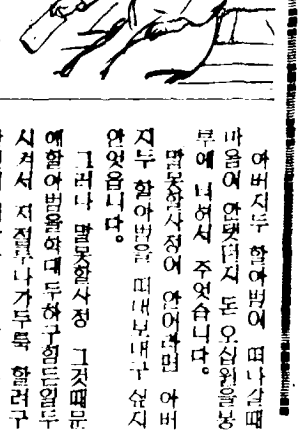 아버지두 할아범이 떠나갈때
마음이 안됏던지 돈 오십원을봉
부에 너허서 주엇습니다。
말못할사정이 안이라면 아버
지두 할아범을 떠내보내구 싶지
안엇읍니다。
그러나 말못할사정 그것때문
에할아범을학대두하구힘든일두
시켜서 저절루나가두룩 할려구